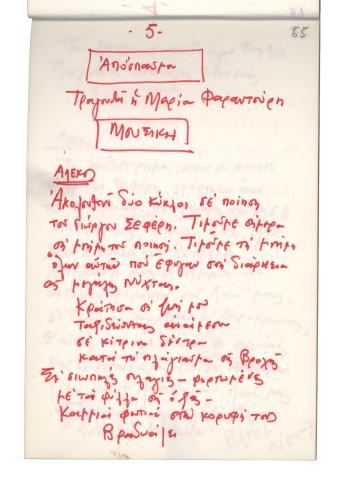 - 5 -
55
Ἀπόσπασμα
Τραγουδᾶ ἡ Μαρία Φαραντούρη
ΜΟΥΣΙΚΗ
ΑΛΕΚΟΣ
Ἀκολουθοῦν δύο κύκλοι σέ ποίηση
τοῦ Γιώργου Σεφέρη. Τιμοῦμε σήμερα
τή μνήμη τοῦ ποιητῆ. Τιμοῦμε τή μνήμη
ὅλων αὐτῶν πού ἔφυγαν στή διάρκεια
τῆς μεγάλης νύχτας.
Κράτησα τή ζωή μου
ταξιδεύοντας ἀνάμεσα
σέ κίτρινα δέντρα
κατά τό πλάγιασμα τῆς βροχῆς
Σέ σιωπηλές πλαγιές φορτωμένες
μέ τά φύλλα τῆς ὀξιᾶς -
Καμμιά φωτιά στήν κορυφή τους
Βραδυάζει